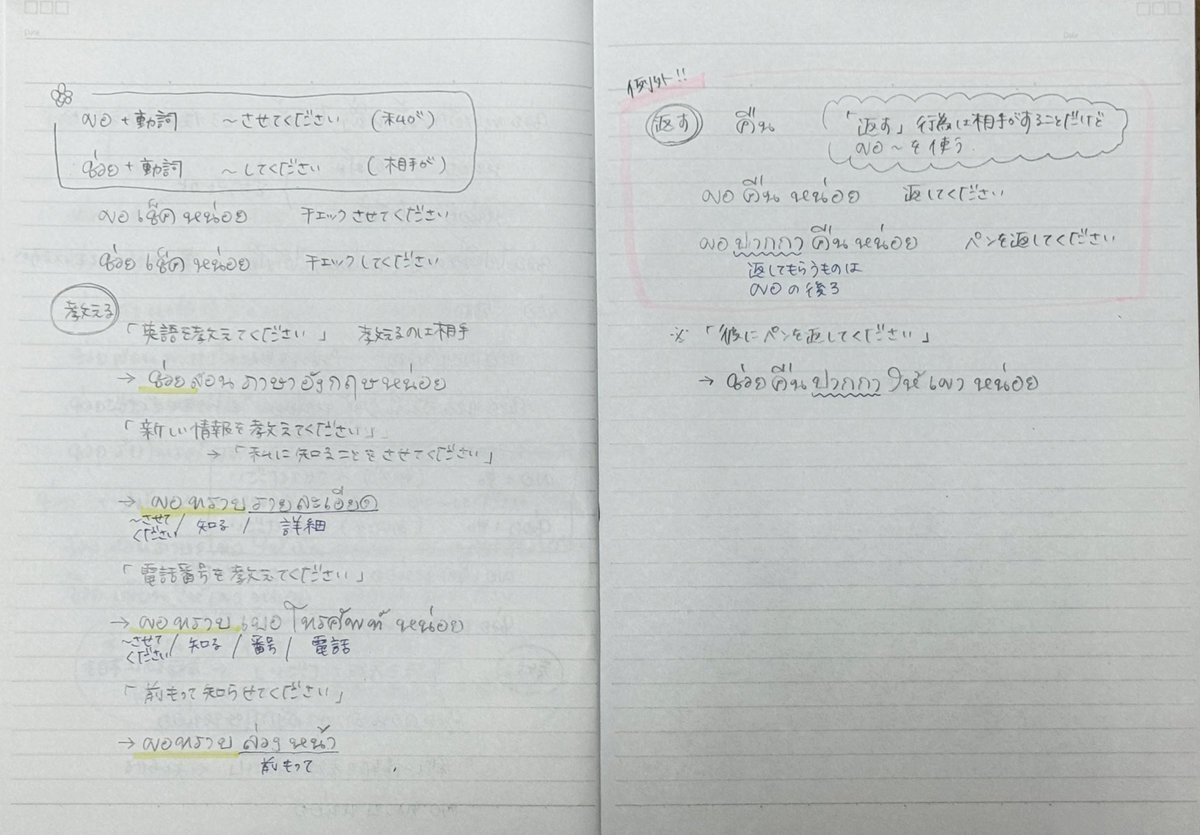 ขอ + 動詞 ～させてください (私が)
ช่อย + 動詞 ～してください (相手が)
ขอ เช็ค หน่อย チェックさせてください
ช่อย เช็ค หน่อย チェックしてください
教える
「英語を教えてください」 教えるのは相手
→ ช่อย สอน ภาษา อังกฤษ หน่อย
「新しい情報を教えてください」
→ 「私に知ることをさせてください」
→ ขอ ทราบ รายละเอียด
～させてください / 知る / 詳細
「電話番号を教えてください」
→ ขอ ทราบ เบอ โทรศัพท์ หน่อย
～させてください / 知る / 番号 / 電話
「前もって知らせてください」
→ ขอ ทราบ ล่วง หน้า
前もって
例外!!
返す คืน 「返す」行為は相手がすることだけど
ขอ～を使う
ขอ คืน หน่อย 返してください
ขอ ปากกา คืน หน่อย ペンを返してください
返してもらうものは
ขอ の後ろ
※ 「彼にペンを返してください」
→ ช่อย คืน ปากกา ให้ เขา หน่อย